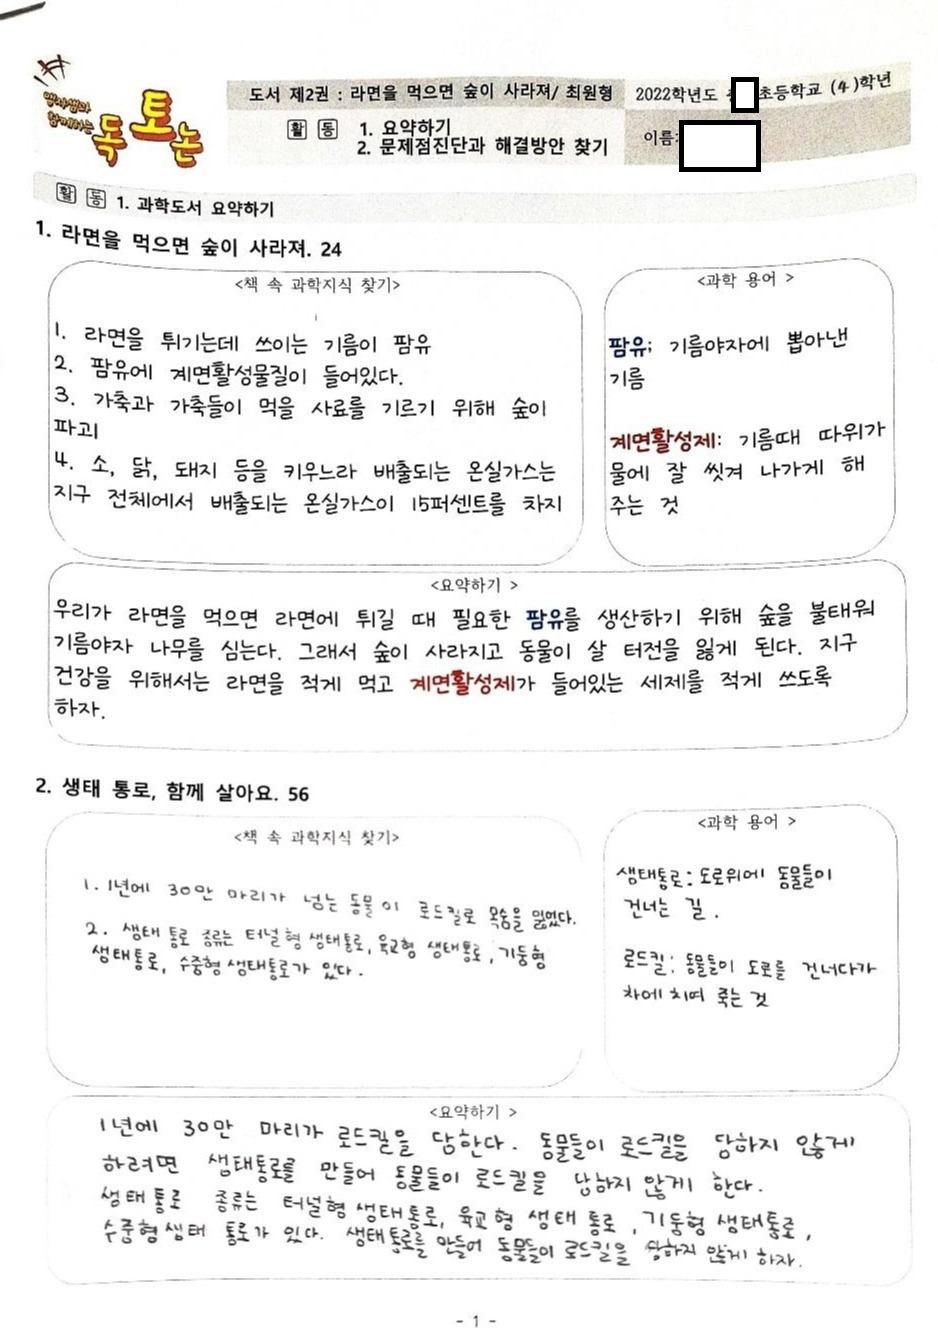 앵자쌤과
함께하는
독토논
도서 제2권 : 라면을 먹으면 숲이 사라져/ 최원형
2022학년도 초등학교 (4)학년
활 동 1. 요약하기
2. 문제점진단과 해결방안 찾기
이름:
활 동 1. 과학도서 요약하기
1. 라면을 먹으면 숲이 사라져. 24
<책 속 과학지식 찾기>
1. 라면을 튀기는데 쓰이는 기름이 팜유
2. 팜유에 계면활성물질이 들어있다.
3. 가축과 가축들이 먹을 사료를 기르기 위해 숲이
파괴
4. 소, 닭, 돼지 등을 키우느라 배출되는 온실가스는
지구 전체에서 배출되는 온실가스이 15퍼센트를 차지
<과학 용어 >
팜유; 기름야자에 뽑아낸
기름
계면활성제: 기름때 따위가
물에 잘 씻겨 나가게 해
주는 것
<요약하기 >
우리가 라면을 먹으면 라면에 튀길 때 필요한 팜유를 생산하기 위해 숲을 불태워
기름야자 나무를 심는다. 그래서 숲이 사라지고 동물이 살 터전을 잃게 된다. 지구
건강을 위해서는 라면을 적게 먹고 계면활성제가 들어있는 세제를 적게 쓰도록
하자.
2. 생태 통로, 함께 살아요. 56
<책 속 과학지식 찾기>
1. 1년에 30만 마리가 넘는 동물이 로드킬로 목숨을 잃었다.
2. 생태 통로 종류는 터널형 생태통로, 육교형 생태통로, 기둥형
생태통로, 수중형 생태통로가 있다.
<과학 용어 >
생태통로: 도로위에 동물들이
건너는 길.
로드킬: 동물들이 도로를 건너다가
차에 치여 죽는 것
<요약하기 >
1년에 30만 마리가 로드킬을 당한다. 동물들이 로드킬을 당하지 않게
하려면 생태통로를 만들어 동물들이 로드킬을 당하지 않게 한다.
생태통로 종류는 터널형 생태통로, 육교형 생태 통로, 기둥형 생태통로,
수중형 생태 통로가 있다. 생태통로를 만들어 동물들이 로드킬을 당하지 않게 하자.
- 1 -